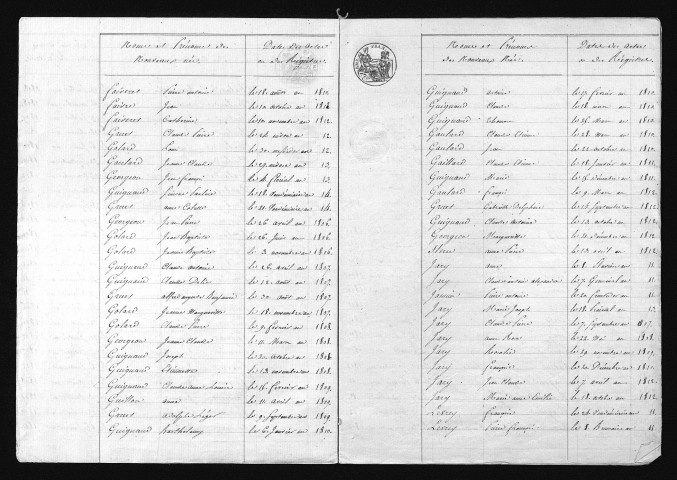 Noms et Prénoms des
Nouveaux nés.
Dates des actes
ou des Registres
faivres Pierre antoine le 18 août an 1812.
faivre Jean le 20 octobre an 1812
faivres Catherine le 10 novembre an 1812.
Grus Claude Pierre le 26 nivose an 12.
Golard le 30 messidor an 12.
Gaulard Jeanne Claude le 29 nivose an 13.
Georgeon Jean françois le 4 floréal an 13.
Guignaud le 28 Vendémiaire an 14.
Grues anne le 21 Vendémiaire an 14.
Georgeon Jean Pierre le 26 avril an 1806.
Golard Jean Baptiste le 26 Juin an 1806.
Golard Jeanne Baptiste le 3 novembre an 1806.
Guignaud Claude antoine le 26 avril an 1807.
Guignaud Claudine le 12 août an 1807.
Grues le 30 août an 1807.
Golard Jeanne Marguerite le 18 novembre an 1807.
Golard Claude Pierre le 9 février an 1808.
Georgeon Jeanne Claude le 11 Mars an 1808.
Guignaud Joseph le 20 octobre an 1808.
Guignaud le 13 novembre an 1808.
Guignaud Claude anne le 16 février an 1809.
Guillon anne le 10 avril an 1809.
Grues adelphe Léger le 9 Septembre an 1809.
Guignaud Barthélemy le 6 Janvier an 1810.
Noms et Prénoms
des Nouveaux Nés.
Dates des actes
ou des Régistres
Guignaud antoine le 17 février an 1810.
Guignaud Claude le 18 mars an 1810
Guignaud le 25 Mars an 1810.
Gaulard Claude Etienne le 28 Mars an 1810.
Gaulard Jean le 22 octobre an 1810.
Gaillard Claude Etienne le 18 Janvier an 1811.
Guignaud Marie le 6 Décembre an 1811.
Gaulard françois le 9 Mars an 1812.
Grues Gabrielle Delphine le 16 Septembre an 1812.
Guignaud Claude antoine le 13 octobre an 1812.
Georgeon Marguerite le 11 Décembre an 1812.
anne Pierre le 13 avril an 1812.
Jary anne le 8 an 11.
Jary Claude antoine alexandre le 7 Germinal an 11.
Pierre antoine le 20 fructidor an 11.
Jary Marie Joseph le 18 floréal an 13.
Jary Claude Pierre le 7 Septembre an 1807.
Jary anne Rose le 22 Mai an 1808.
Jary Rosalie le 29 novembre an 1809.
Jary françoise le 20 Décembre an 1811.
Jary Jean Claude le 7 avril an 1812.
Jary Marie anne le 18 octobre an 1812.
Ledrey françoise le 26 Vendémiaire an 11.
Ledrey Pierre françois le 8 Brumaire an 11.